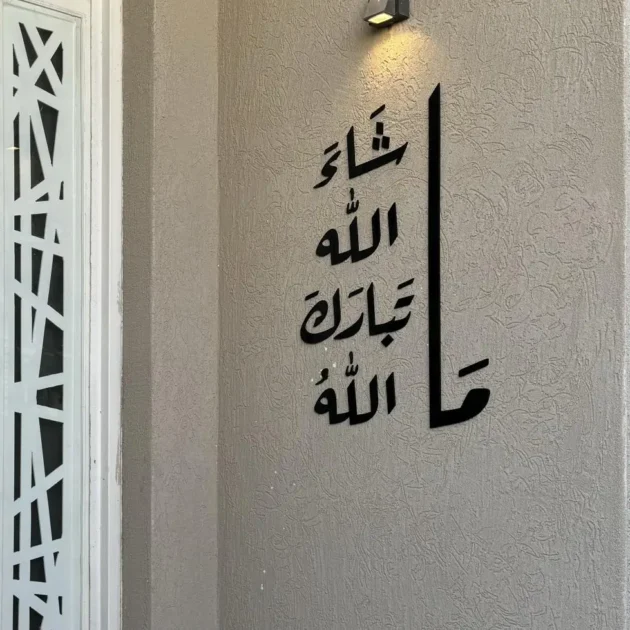 مَا
شَاءَ
الله
تَبارَكَ
اللهُ